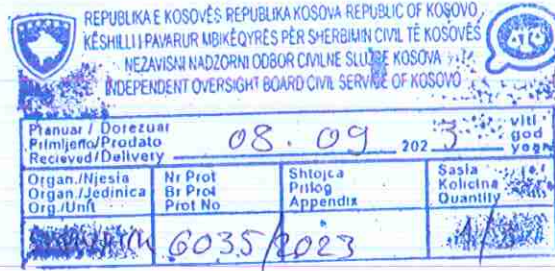 REPUBLIKA E KOSOVËS REPUBLIKA KOSOVA REPUBLIC OF KOSOVO
KËSHILLI I PAVARUR MBIKËQYRËS PËR SHERBIMIN CIVIL TË KOSOVËS
NEZAVISNI NADZORNI ODBOR CIVILNE SLUŽBE KOSOVA
INDEPENDENT OVERSIGHT BOARD CIVIL SERVICE OF KOSOVO
Pranuar / Dorezuar
Primljeno/Prodato
Recieved/Delivery
08. 09 202 3
viti
god
year
Organ./Njesia
Organ./Jedinica
Org./Unit
Nr Prot
Br Prot
Prot No
Shtojca
Prilog
Appendix
Sasia
Kolicina
Quantity
6035/2023